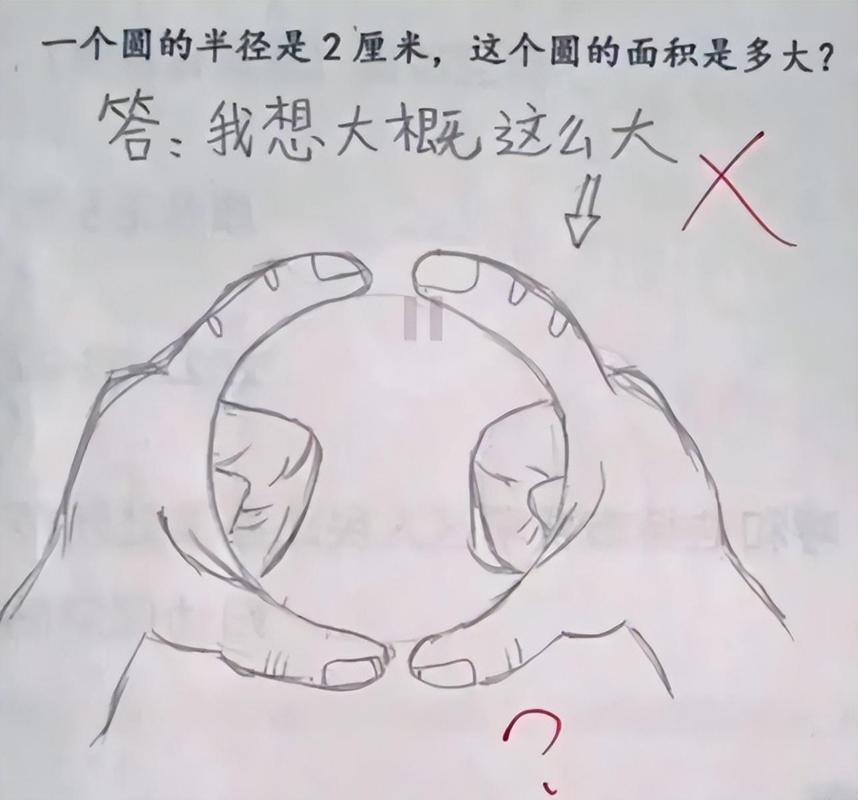 一个圆的半径是2厘米，这个圆的面积是多大？
答：我想大概这么大
？